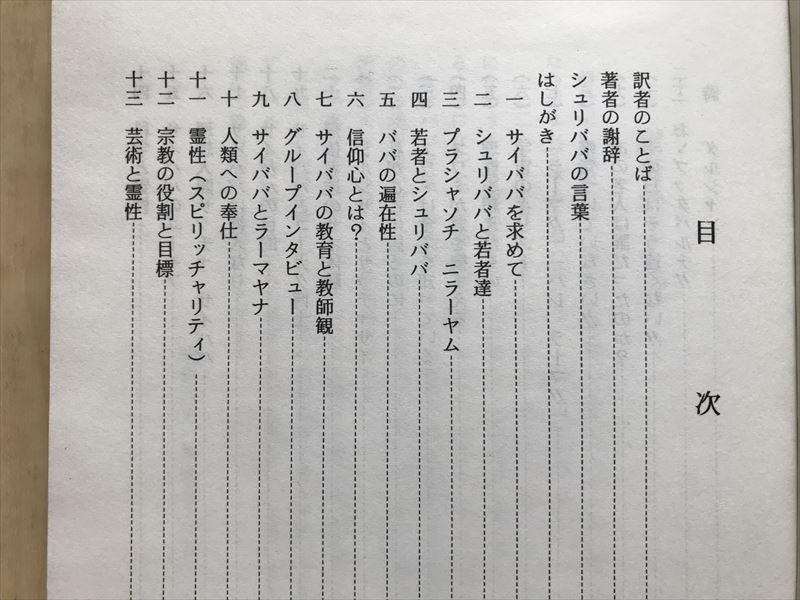 目次
訳者のことば
著者の謝辞
シュリババの言葉
はしがき
一 サイババを求めて
二 シュリババと若者達
三 プラシャソチ ニラーヤム
四 若者とシュリババ
五 ババの遍在性
六 信仰心とは?
七 サイババの教育と教師観
八 グループインタビュー
九 サイババとラーマヤナ
十 人類への奉仕
十一 霊性(スピリッチャリティ)
十二 宗教の役割と目標
十三 芸術と霊性